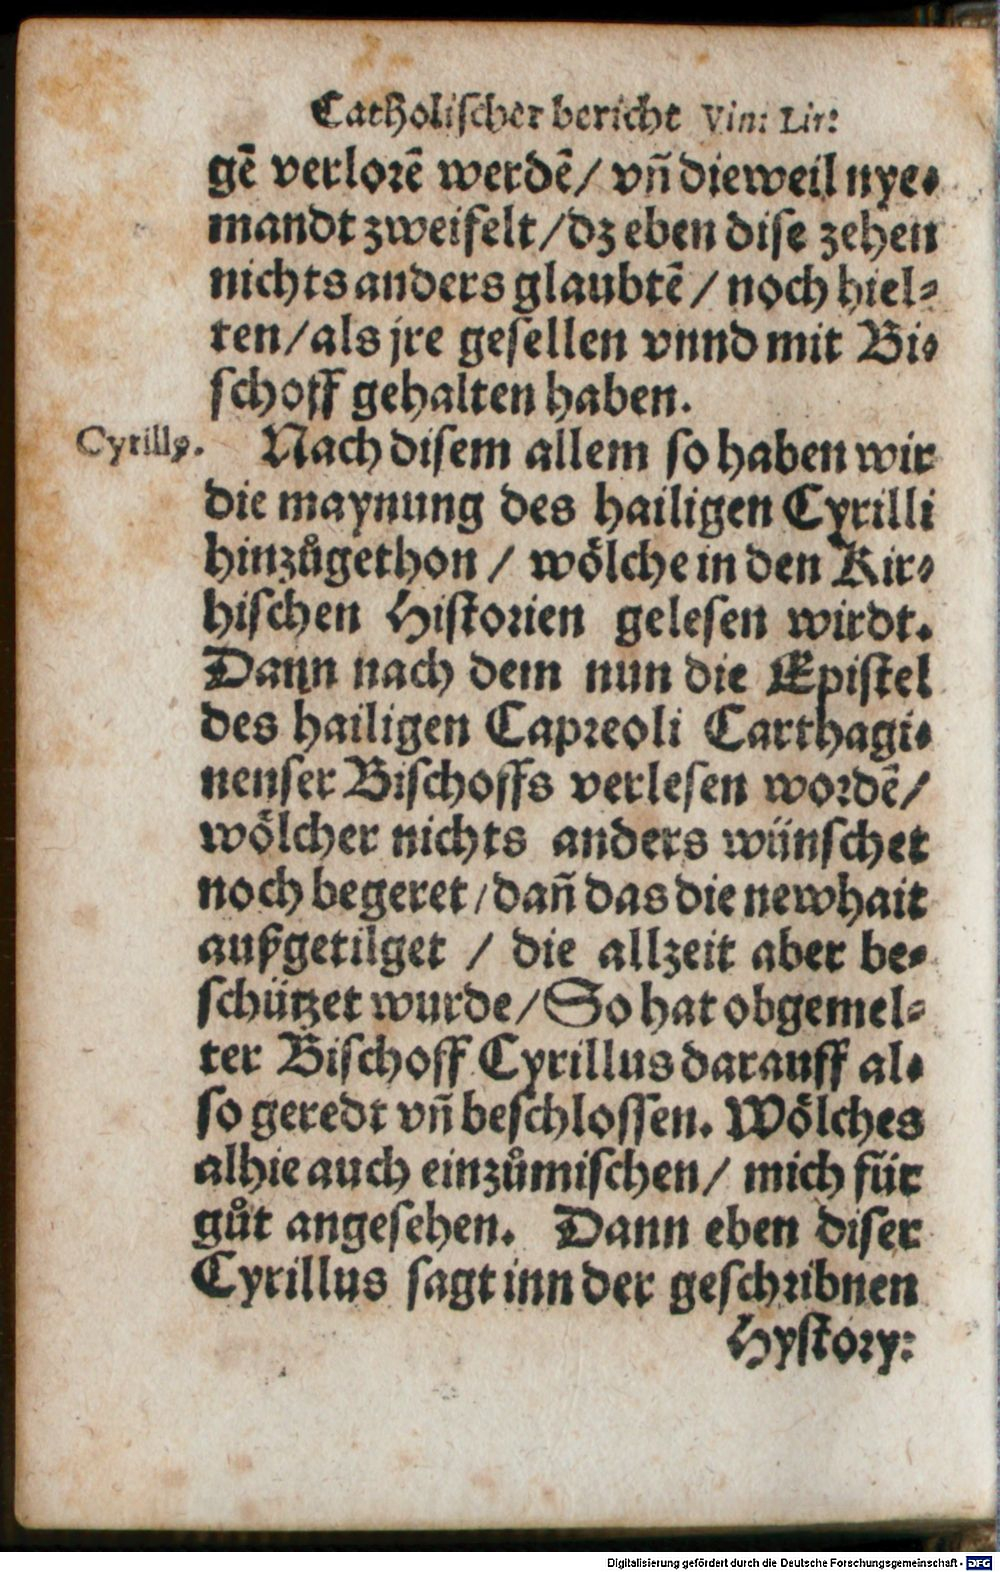 Catholischer bericht Vin: Lir:
gẽ verlorẽ werdẽ/ vñ dieweil nye-
mandt zweifelt/dz eben dise zehen
nichts anders glaubtẽ/ noch hiel-
ten/als jre gesellen vnnd mit Bi-
schoff gehalten haben.
Cyrillꝰ.
Nach disem allem so haben wir
die maynung des hailigen Cyrilli
hinzůgethon / wölche in den Kir-
hischen Historien gelesen wirdt.
Dann nach dem nun die Epistel
des hailigen Capreoli Carthagi-
nenser Bischoffs verlesen wordẽ/
wölcher nichts anders wünschet
noch begeret/dañ das die newhait
außgetilget / die allzeit aber be-
schützet wurde/So hat obgemel-
ter Bischoff Cyrillus darauff al-
so geredt vñ beschlossen. Wölches
alhie auch einzůmischen/ mich für
gůt angesehen. Dann eben diser
Cyrillus sagt inn der geschribnen
Hystory:
Digitalisierung gefördert durch die Deutsche Forschungsgemeinschaft - DFG